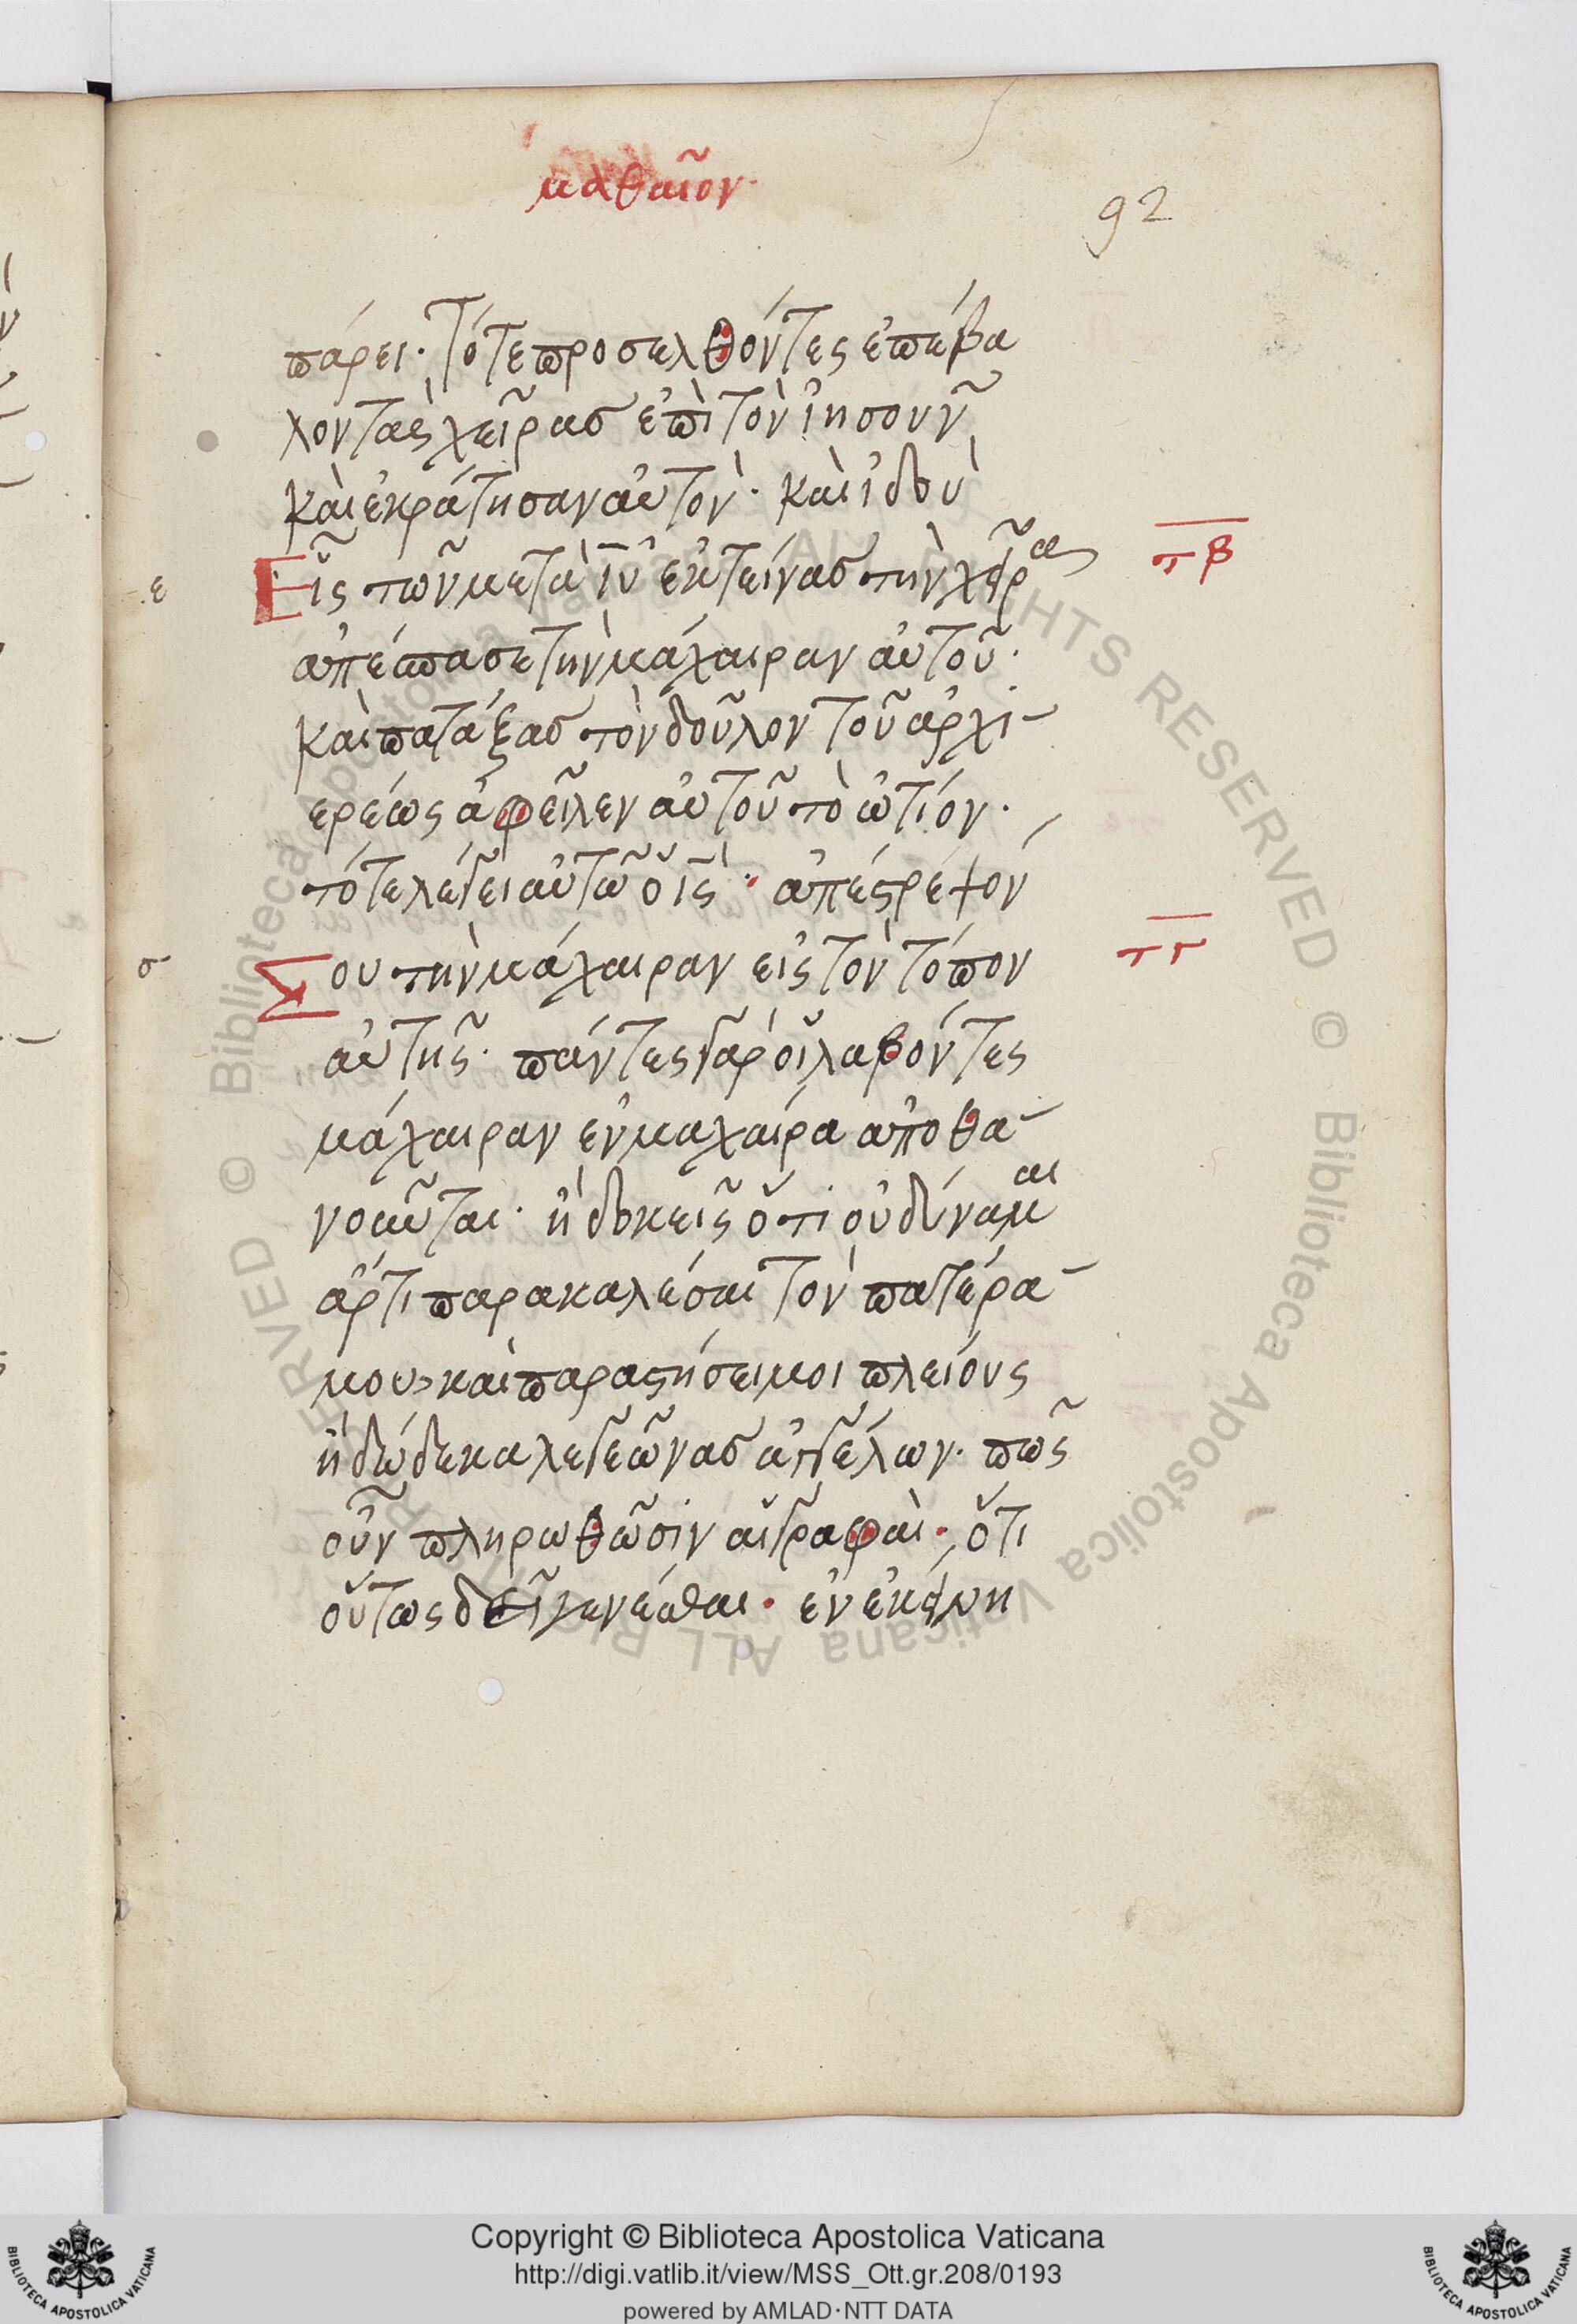 ματθαῖον·
92
πάρει· Τότε προσελθόντες ἐπέβα
λον τὰς χεῖρας ἐπὶ τὸν ἰησοῦν
καὶ ἐκράτησαν αὐτὸν· καὶ ἰδοὺ
ε Εἷς τῶν μετὰ ἰῦ ἐκτείνας τὴν χεῖρα πβ
ἀπέσπασε τὴν μάχαιραν αὐτοῦ·
καὶ πατάξας τὸν δοῦλον τοῦ ἀρχι-
ερέως ἀφεῖλεν αὐτοῦ τὸ ὠτίον·
τότε λέγει αὐτῶ ὁ ἰς· ἀπόστρεψόν
σ Σου τὴν μάχαιραν εἰς τὸν τόπον πγ
αὐτῆς· πάντες γὰρ οἱ λαβόντες
μάχαιραν ἐν μαχαίρα ἀποθα-
νοῦνται· ἢ δοκεῖς ὅτι οὐ δύναμαι
ἄρτι παρακαλέσαι τὸν πατέρα-
μου, καὶ παραστήσει μοι πλείους
ἢ δώδεκα λεγεῶνας ἀγγέλων· πῶς
οὖν πληρωθῶσιν αἱ γραφαὶ· ὅτι
οὕτως δεῖ γενέσθαι· ἐν ἐκείνη
Copyright © Biblioteca Apostolica Vaticana
http://digi.vatlib.it/view/MSS_Ott.gr.208/0193
powered by AMLAD·NTT DATA